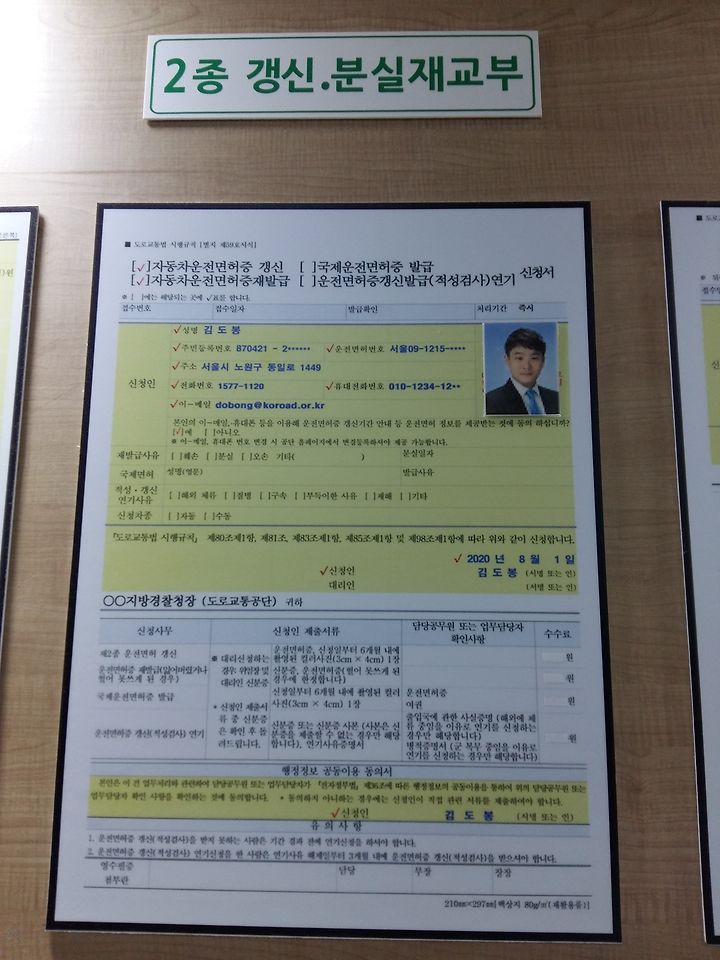 2종 갱신.분실재교부
■ 도로교통법 시행규칙 [별지 제59호서식]
[✓]자동차운전면허증 갱신 [ ]국제운전면허증 발급
[✓]자동차운전면허증재발급 [ ]운전면허증갱신발급(적성검사)연기 신청서
※ [ ]에는 해당되는 곳에 √표를 합니다.
접수번호 접수일자 발급확인 처리기간 즉시
신청인
✓성명 김 도 봉
✓주민등록번호 870421 - 2****** ✓운전면허번호 서울09-1215-*****
✓주소 서울시 노원구 동일로 1449
✓전화번호 1577-1120 ✓휴대전화번호 010-1234-12**
✓이-메일 dobong@koroad.or.kr
본인의 이-메일,휴대폰 등을 이용해 운전면허증 갱신기간 안내 등 운전면허 정보를 제공받는 것에 동의 하십니까?
[✓]예 [ ]아니오
※ 이-메일, 휴대폰 번호 변경 시 공단 홈페이지에서 변경등록하셔야 제공 가능합니다.
재발급사유 [ ]훼손 [ ]분실 [ ]오손 기타( ) 분실일자
국제면허 성명(영문) 발급사유
적성·갱신
연기사유 [ ]해외 체류 [ ]질병 [ ]구속 [ ]부득이한 사유 [ ]재해 [ ]기타
신청차종 [ ]자동 [ ]수동
「도로교통법 시행규칙」 제80조제1항, 제81조, 제83조제1항, 제85조제1항 및 제98조제1항에 따라 위와 같이 신청합니다.
✓ 2020 년 8 월 1 일
✓신청인 김 도 봉 (서명 또는 인)
대리인 (서명 또는 인)
○○지방경찰청장 (도로교통공단) 귀하
신청사무 신청인 제출서류 담당공무원 또는 업무담당자
확인사항 수수료
제2종 운전면허 갱신
운전면허증 재발급(잃어버렸거나
헐어 못쓰게 된 경우)
국제운전면허증 발급
운전면허증 갱신(적성검사) 연기
※ 대리신청하는
경우: 위임장 및
대리인 신분증
* 신청인 제출서
류 중 신분증
은 확인 후 돌
려드립니다.
운전면허증, 신청일부터 6개월 내에
촬영된 컬러사진(3cm × 4cm) 1장
신분증, 운전면허증(헐어 못쓰게 된
경우에 한정합니다)
신청일부터 6개월 내에 촬영된 컬러
사진(3cm × 4cm) 1장
신분증 또는 신분증 사본 (사본은 신
분증을 제출할 수 없는 경우만 해당
합니다), 연기사유증명서
운전면허증
여권
출입국에 관한 사실증명 (해외에 체
류 중임을 이유로 연기를 신청하는
경우만 해당합니다)
병적증명서 (군 복무 중임을 이유로
연기를 신청하는 경우만 해당합니다)
원
원
원
원
행정정보 공동이용 동의서
본인은 이 건 업무처리와 관련하여 담당공무원 또는 업무담당자가 「전자정부법」 제36조에 따른 행정정보의 공동이용을 통하여 위의 담당공무원 또는
업무담당자 확인 사항을 확인하는 것에 동의합니다. * 동의하지 아니하는 경우에는 신청인이 직접 관련 서류를 제출하여야 합니다.
✓신청인 김 도 봉 (서명 또는 인)
유 의 사 항
1. 운전면허증 갱신(적성검사)을 받지 못하는 사람은 기간 경과 전에 연기신청을 하셔야 합니다.
2. 운전면허증 갱신(적성검사) 연기신청을 한 사람은 연기사유 해제일부터 3개월 내에 운전면허증 갱신(적성검사)을 받으셔야 합니다.
영수필증
첨부란 담당 부장 장장
210㎜×297㎜[백상지 80g/㎡(재활용품)]